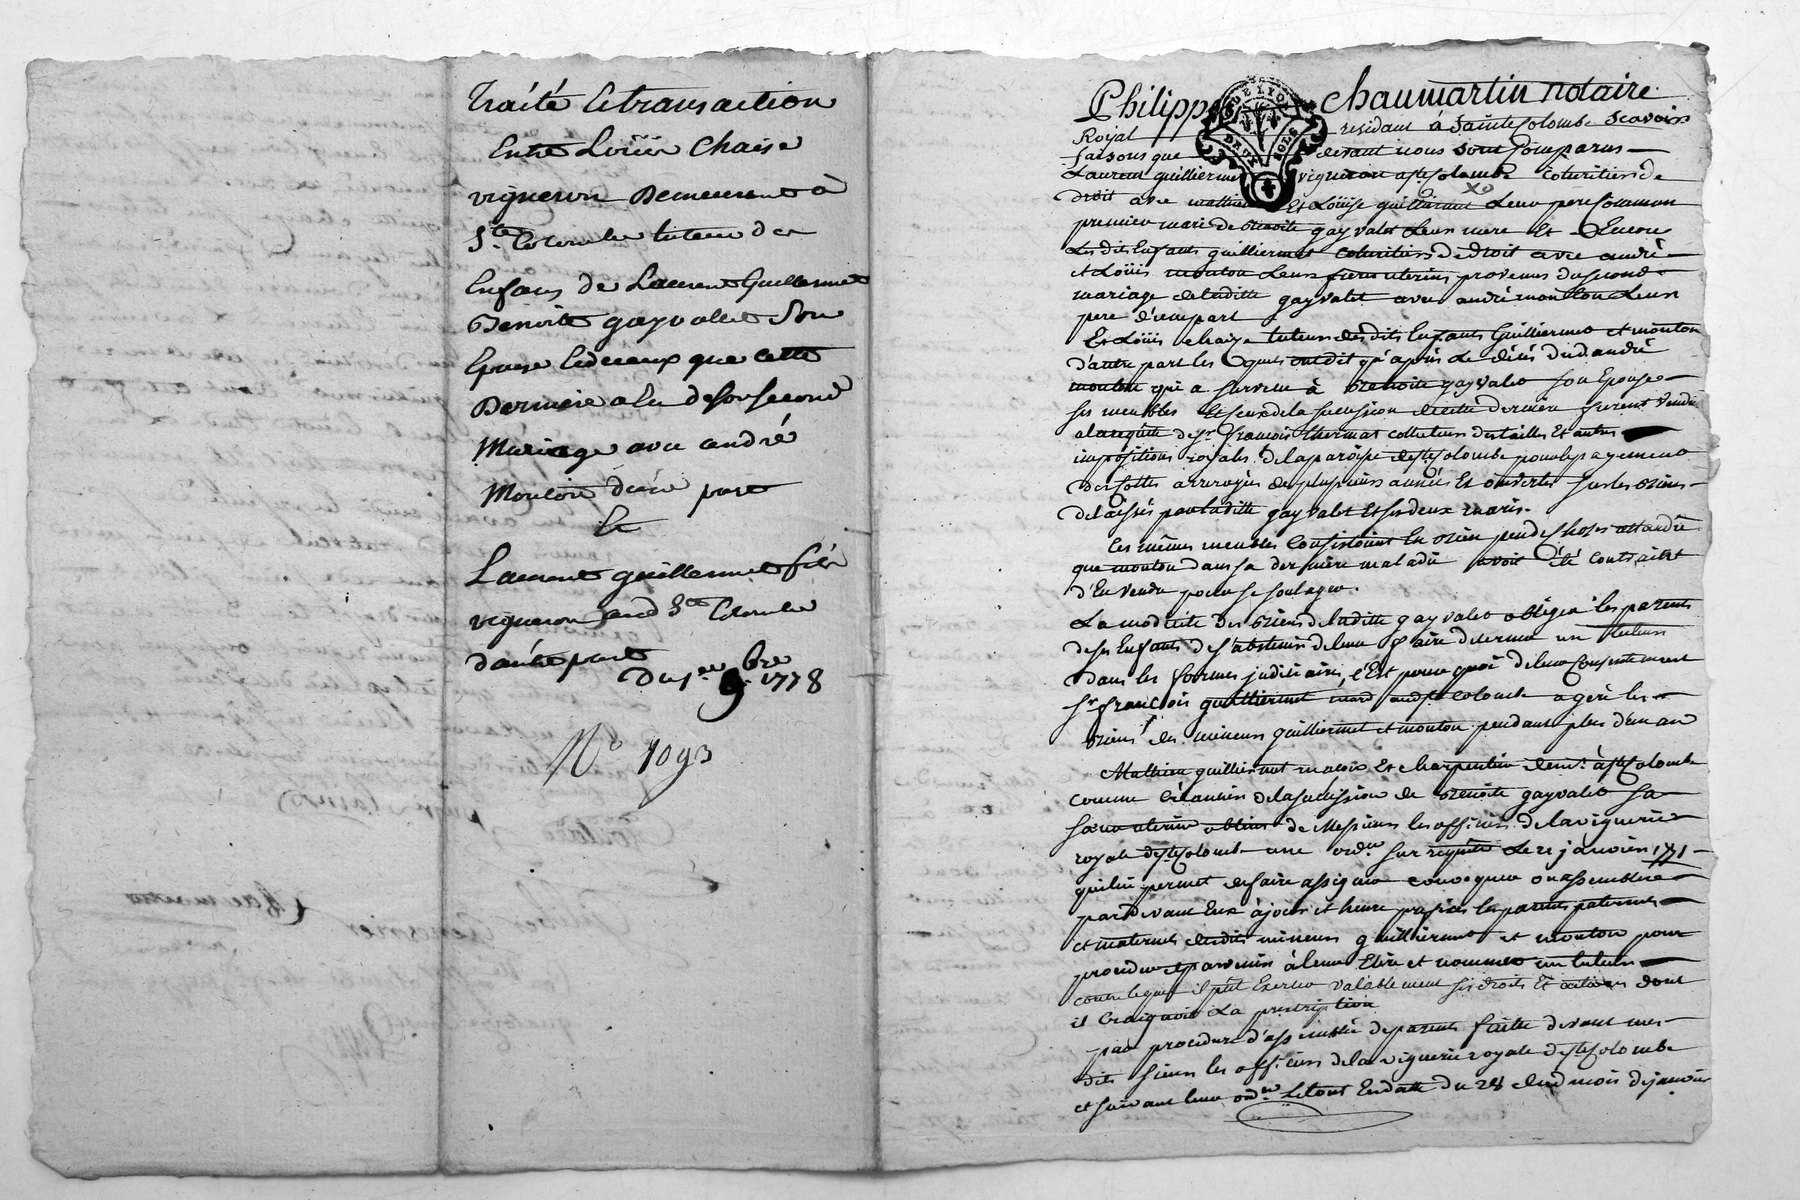 Traité Et transaction
Entre Loüis Chaise
vigneron Demeurant à
Ste Colombe tuteur des
Enfans de Laurent Guillermet
Benoite gayvallet Son
Epouse Et de ceux que cette
Derniere a Eu de son second
Mariage avec andré
Mouton d'une part
Et
Laurent guillermet fils
vigneron aud Ste Colombe
d'autre part
Du 1er 9bre 1778
No 1093
Philippe Chaumartin notaire
Royal residant à Sainte Colombe Scavoir
faisons que devant nous sont Comparus
Laurent guillermet vigneron a Ste Colombe Coheritier de
droit avec mathieu Et Loüise guillermet Leur pere Commun
premier mari de Benoite gayvalet Leur mere Et Encore
Lesdits Enfants guillermet Coheritiers de Droit avec andré
et Loüis mouton Leurs freres uterins provenus du second
mariage de laditte gayvalet avec andré mouton Leur
pere d'une part
Et Loüis chaize tuteur desdits Enfants Guillermet et mouton
d'autre part les quels ont dit qu'après Le décès dud andré
mouton qui a survecu à Benoite gayvalet son Epouse
ses meubles Et ceux de la sucession de cette derniere furent vendu
a la requete de sr françois thermat collecteur des tailles Et autres
impositions royales de la paroisse de Ste Colombe pour le payement
des cottes arreragées de plusieurs années Et ouvertes sur les biens
delaissés par laditte gayvalet Et ses deux maris.
Ces mêmes meubles Consistoient En bien peu de choses attendu
que mouton dans sa derniere maladie avoit été contraint
d'En vendre pour se soulager.
La modicité des biens de laditte gayvalet obligea les parents
de ses Enfants de s'abstenir de leur faire decerner un tuteur
dans les formes judiciaires, c'Est pourquoi de leur Consentement
sr françois guillermet mard aud Ste colombe a geré les
biens des mineurs guillermet et mouton pendant plus d'un an
Mathieu guillermet maçon Et charpentier demt à Ste Colombe
comme Créancier de la sucession de Benoite gayvalet sa
sœur uterine obtint de Messieurs les officiers de la viguerie
royale de Ste Colombe une ordce sur requette Le 21 janvier 1771
qui lui permet de faire assigner convoquer ou assembler
pardevant Eux à jour et heure precises les parents paternels
et maternels desdits mineurs guillermet et mouton pour
proceder et parvenir à leur Elire et nommer un tuteur
contre lequel il put Exercer valablement ses droits Et actions dont
il Craignoit La prescription
par procedure d'assemblée de parents faitte devant mes
dits sieurs les officiers de la viguerie royale de Ste Colombe
et suivant leur ordce Le tout En datte du 28 dud mois de janvier